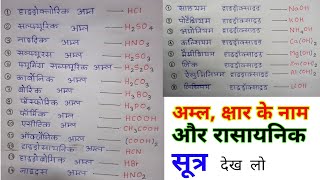 ① हाइड्रोक्लोरिक अम्ल — HCl
② सल्फ्यूरिक अम्ल — H₂SO₄
③ नाइट्रिक अम्ल — HNO₃
④ सल्फ्यूरस अम्ल — H₂SO₃
⑤ सल्फ्यूरिक अम्ल
⑥ कार्बोनिक अम्ल — H₂CO₃
⑦ बोरिक अम्ल — H₃BO₃
⑧ फॉस्फोरिक अम्ल — H₃PO₄
⑨ फॉर्मिक अम्ल — HCOOH
⑩ एसीटिक अम्ल — CH₃COOH
⑪ अम्ल — (COOH)₂
⑫ हाइड्रोसायनिक अम्ल — HCN
⑬ हाइड्रोब्रोमिक अम्ल — HBr
⑭ नाइट्रस अम्ल
① सोडियम हाइड्रॉक्साइड — NaOH
② पोटैशियम हाइड्रॉक्साइड — KOH
③ अमोनियम हाइड्रॉक्साइड — NH₄OH
④ कैल्शियम हाइड्रॉक्साइड — Ca(OH)₂
⑤ मैग्नीशियम हाइड्रॉक्साइड
⑥ जिंक हाइड्रॉक्साइड
⑦ हाइड्रॉक्साइड
⑧ लिथियम हाइड्रॉक्साइड — LiOH
अम्ल, क्षार के नाम
और रासायनिक
सूत्र देख लो